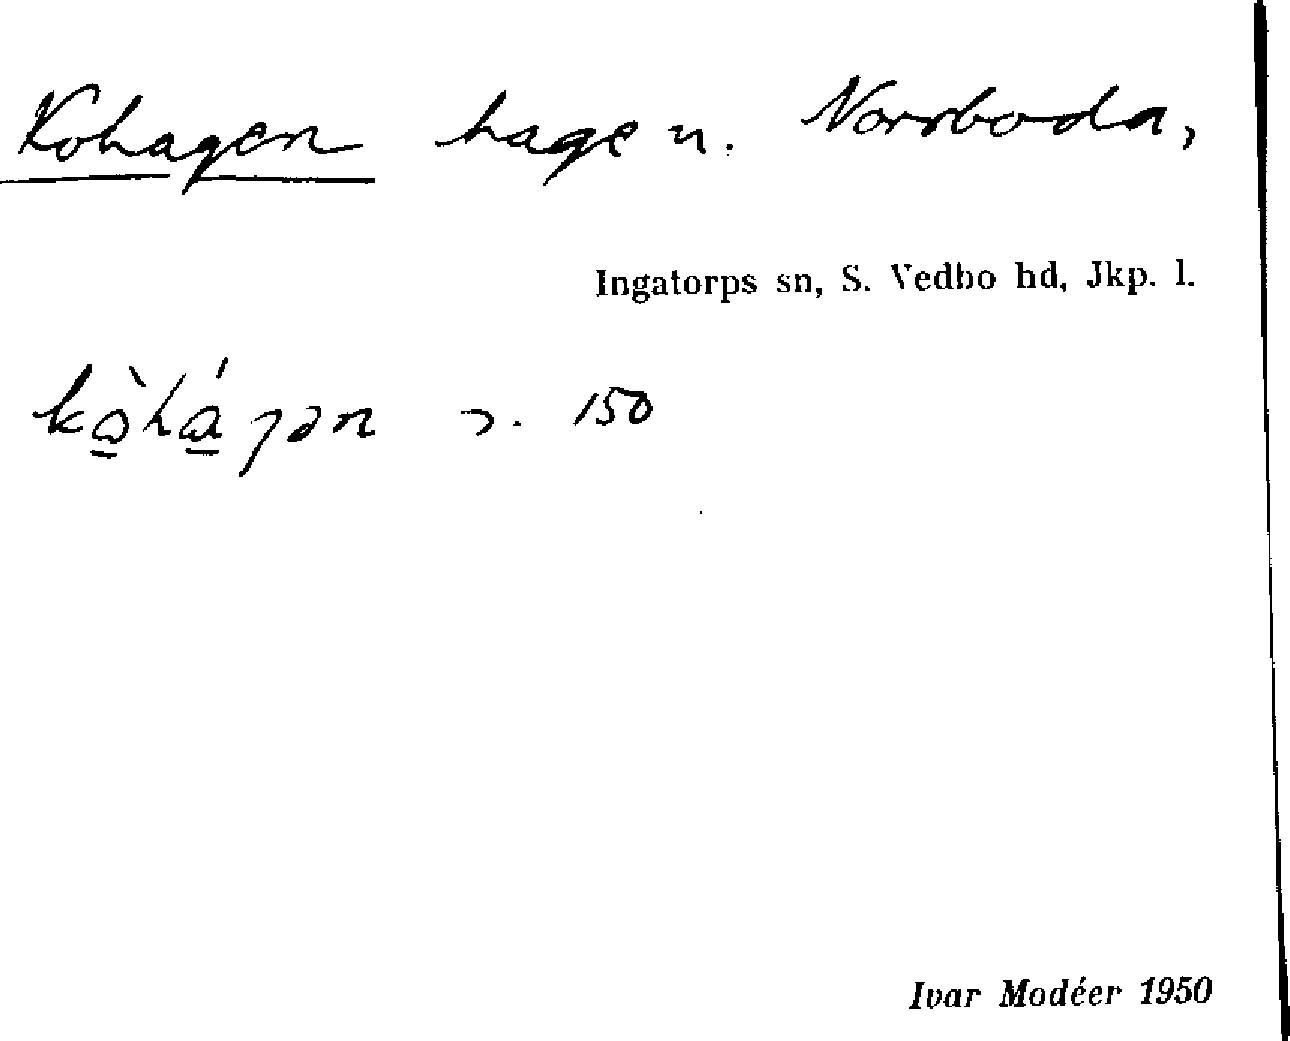 Kohagen hage n. Norrboda,
Ingatorps sn, S. Vedbo hd, Jkp. l.
150
Ivar Modéer 1950